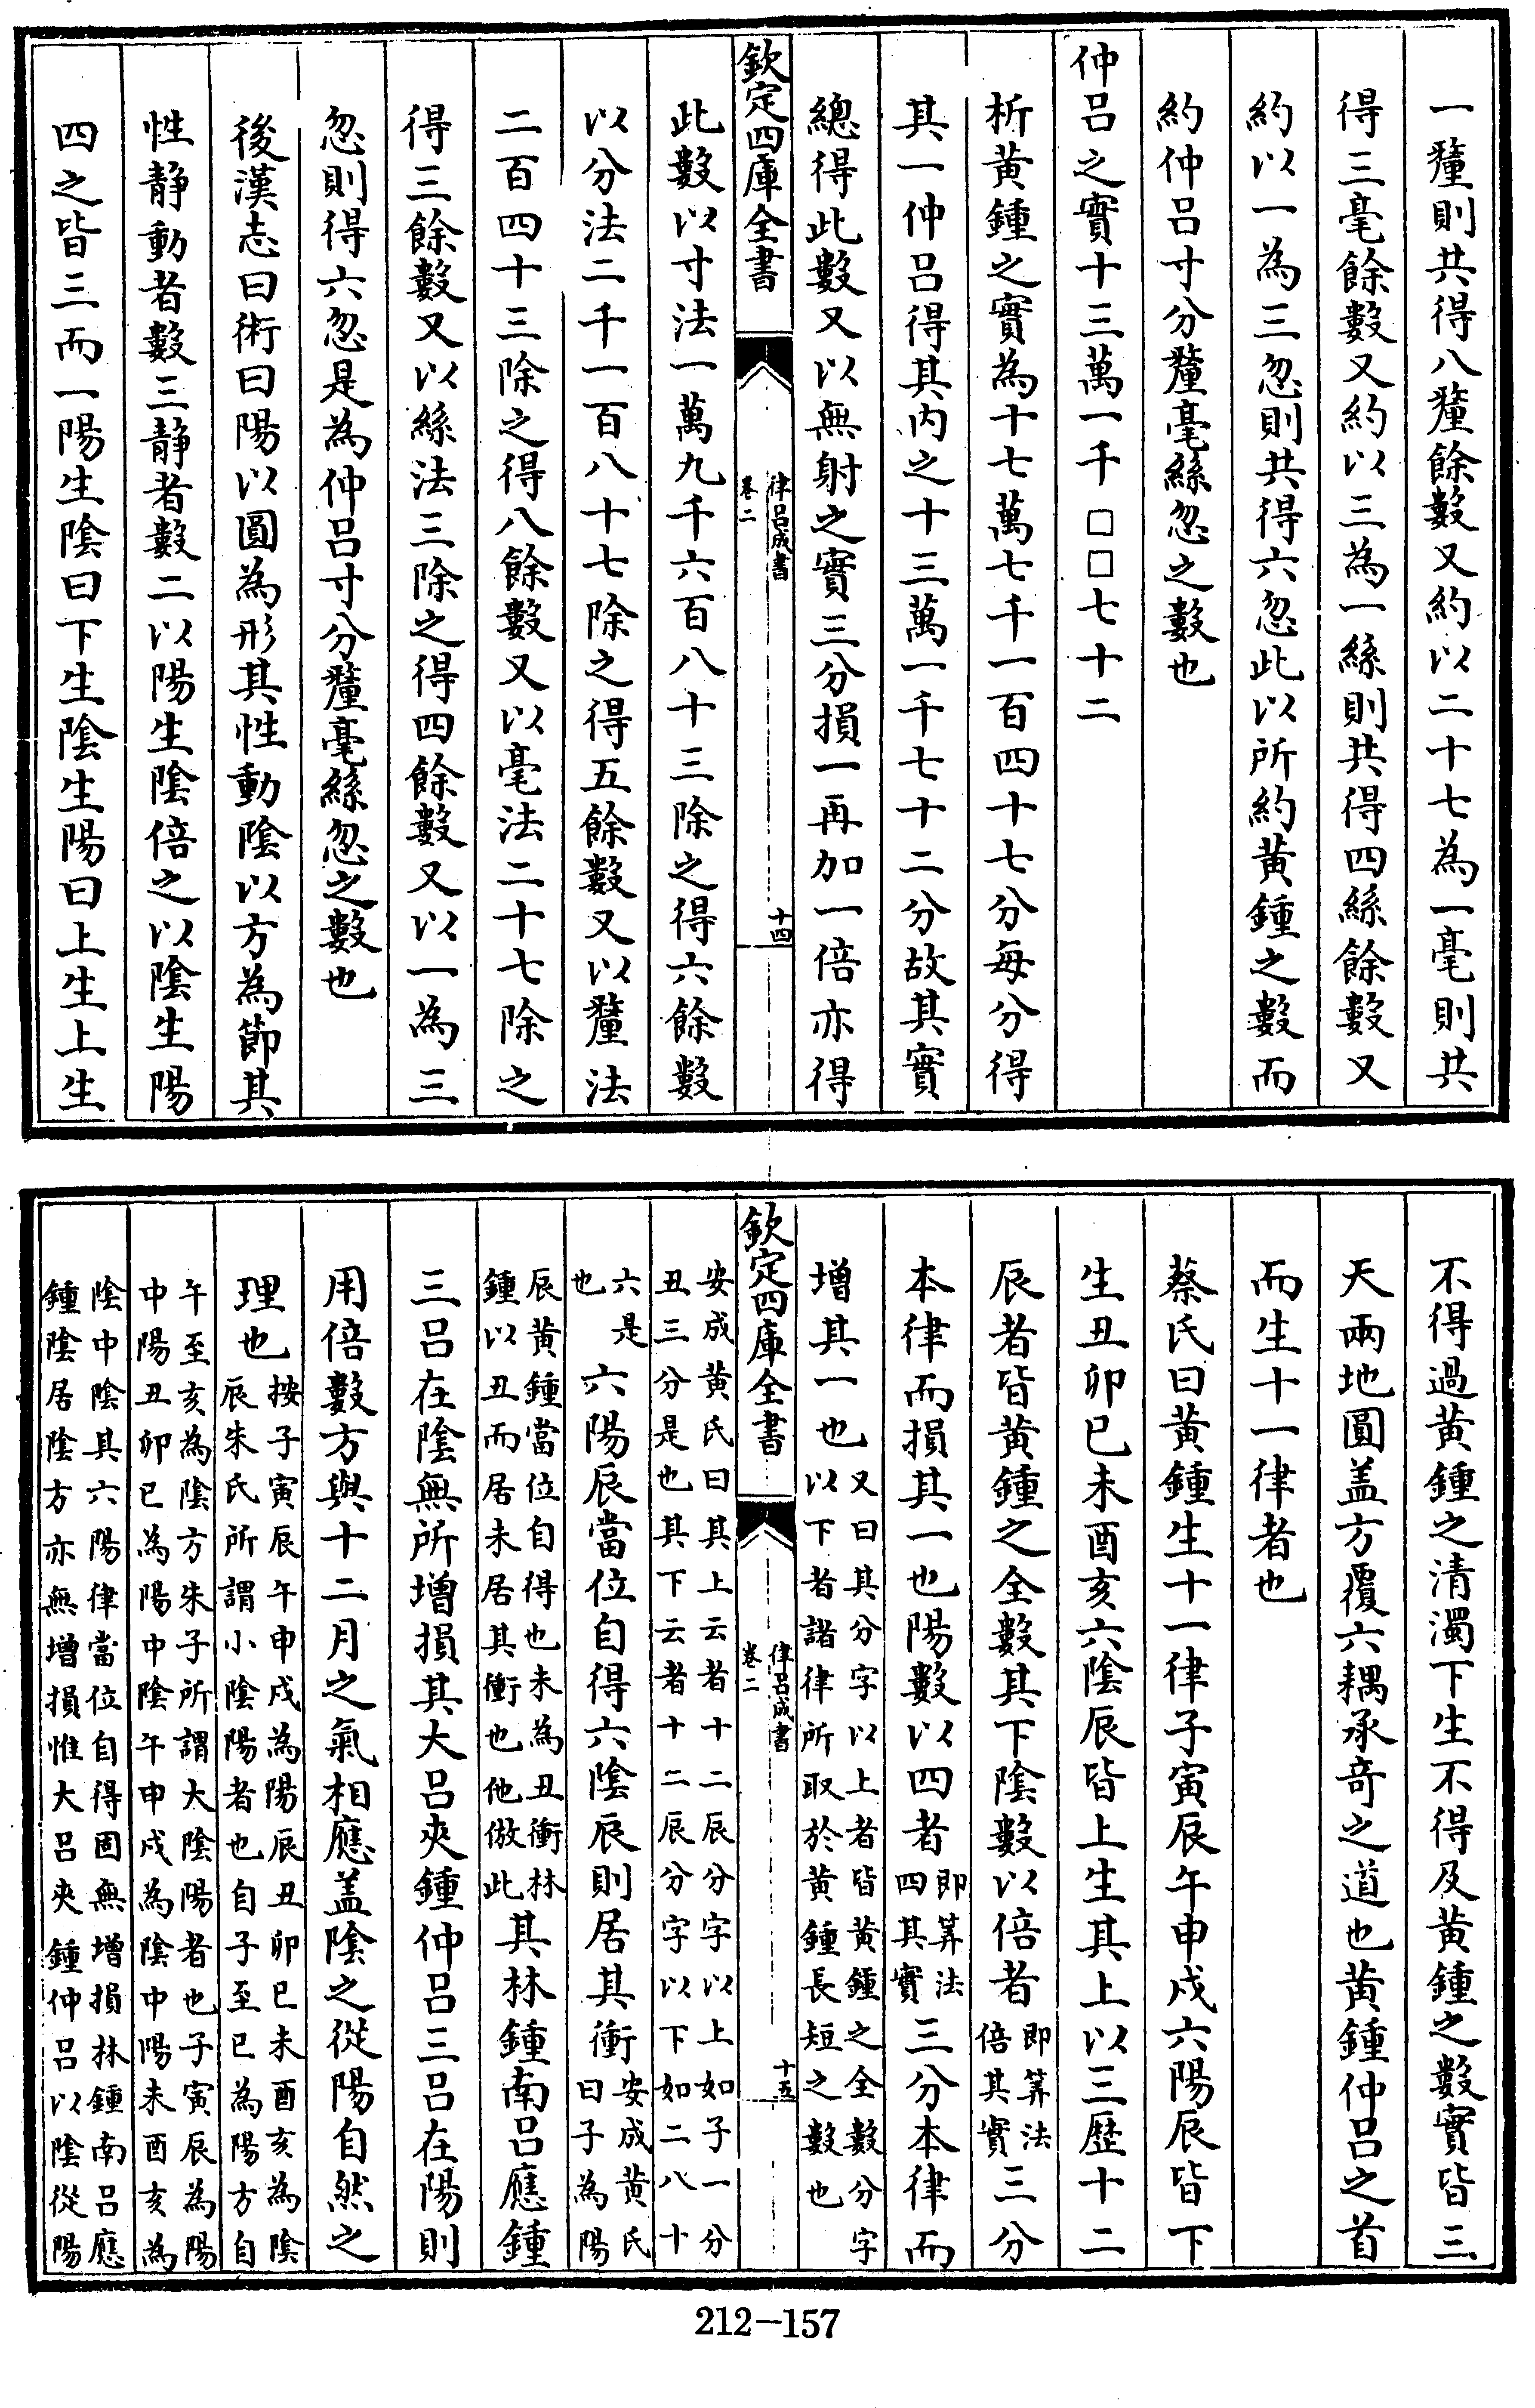 一釐則共得八釐餘數又約以二十七為一毫則共
得三毫餘數又約以三為一絲則共得四絲餘數又
約以一為三忽則共得六忽此以所約黄鍾之數而
約仲呂寸分釐毫絲忽之數也
仲呂之實十三萬一千□□七十二
析黄鍾之實為十七萬七千一百四十七分每分得
其一仲呂得其内之十三萬一千七十二分故其實
總得此數又以無射之實三分損一再加一倍亦得
欽定四庫全書
律呂成書
卷二
十四
此數以寸法一萬九千六百八十三除之得六餘數
以分法二千一百八十七除之得五餘數又以釐法
二百四十三除之得八餘數又以毫法二十七除之
得三餘數又以絲法三除之得四餘數又以一為三
忽則得六忽是為仲呂寸分釐毫絲忽之數也
後漢志曰術曰陽以圓為形其性動隂以方為節其
性静動者數三静者數二以陽生隂倍之以隂生陽
四之皆三而一陽生隂曰下生隂生陽曰上生上生
不得過黄鍾之清濁下生不得及黄鍾之數實皆三
天兩地圓盖方覆六耦承竒之道也黄鍾仲呂之首
而生十一律者也
蔡氏曰黄鍾生十一律子寅辰午申戌六陽辰皆下
生丑卯巳未酉亥六隂辰皆上生其上以三歴十二
辰者皆黄鍾之全數其下隂數以倍者即筭法倍其實三分
本律而損其一也陽數以四者即筭法四其實三分本律而
增其一也又曰其分字以上者皆黄鍾之全數分字以下者諸律所取於黄鍾長短之數也
欽定四庫全書
律呂成書
卷二
十五
安成黄氏曰其上云者十二辰分字以上如子一分
丑三分是也其下云者十二辰分字以下如二八十
六是也六陽辰當位自得六隂辰則居其衝安成黄氏曰子為陽
辰黄鍾當位自得也未為丑衝林鍾以丑而居未居其衝也他倣此其林鍾南呂應鍾
三呂在隂無所增損其大呂夾鍾仲呂三呂在陽則
用倍數方與十二月之氣相應盖隂之從陽自然之
理也按子寅辰午申戌為陽辰丑卯巳未酉亥為隂辰朱氏所謂小隂陽者也自子至巳為陽方自
午至亥為隂方朱子所謂大隂陽者也子寅辰為陽中陽丑卯巳為陽中隂午申戌為隂中陽未酉亥為
隂中隂其六陽律當位自得固無增損林鍾南呂應鍾隂居隂方亦無增損惟大呂夾鍾仲呂以隂從陽
212—157